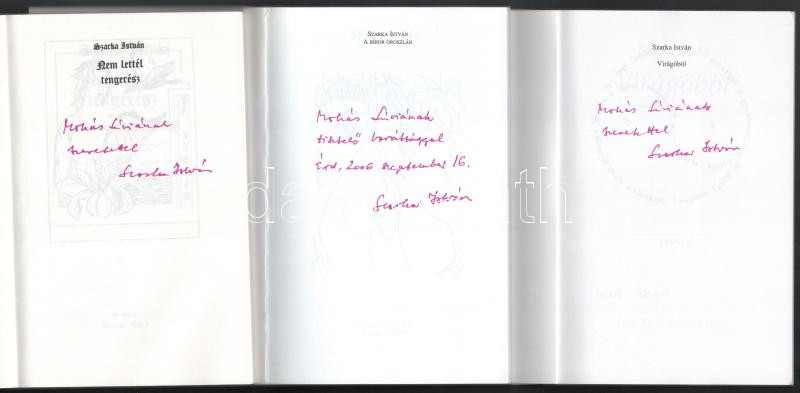 Szarka István
Nem lettél
tengerész
Mohás Líviának
szeretettel
Szarka István
SZARKA ISTVÁN
A BÍBOR OROSZLÁN
Mohás Líviának
tisztelő barátsággal
Érd, 2006 szeptember 16.
Szarka István
Szarka István
Virágöböl
Mohás Líviának
szeretettel
Szarka István